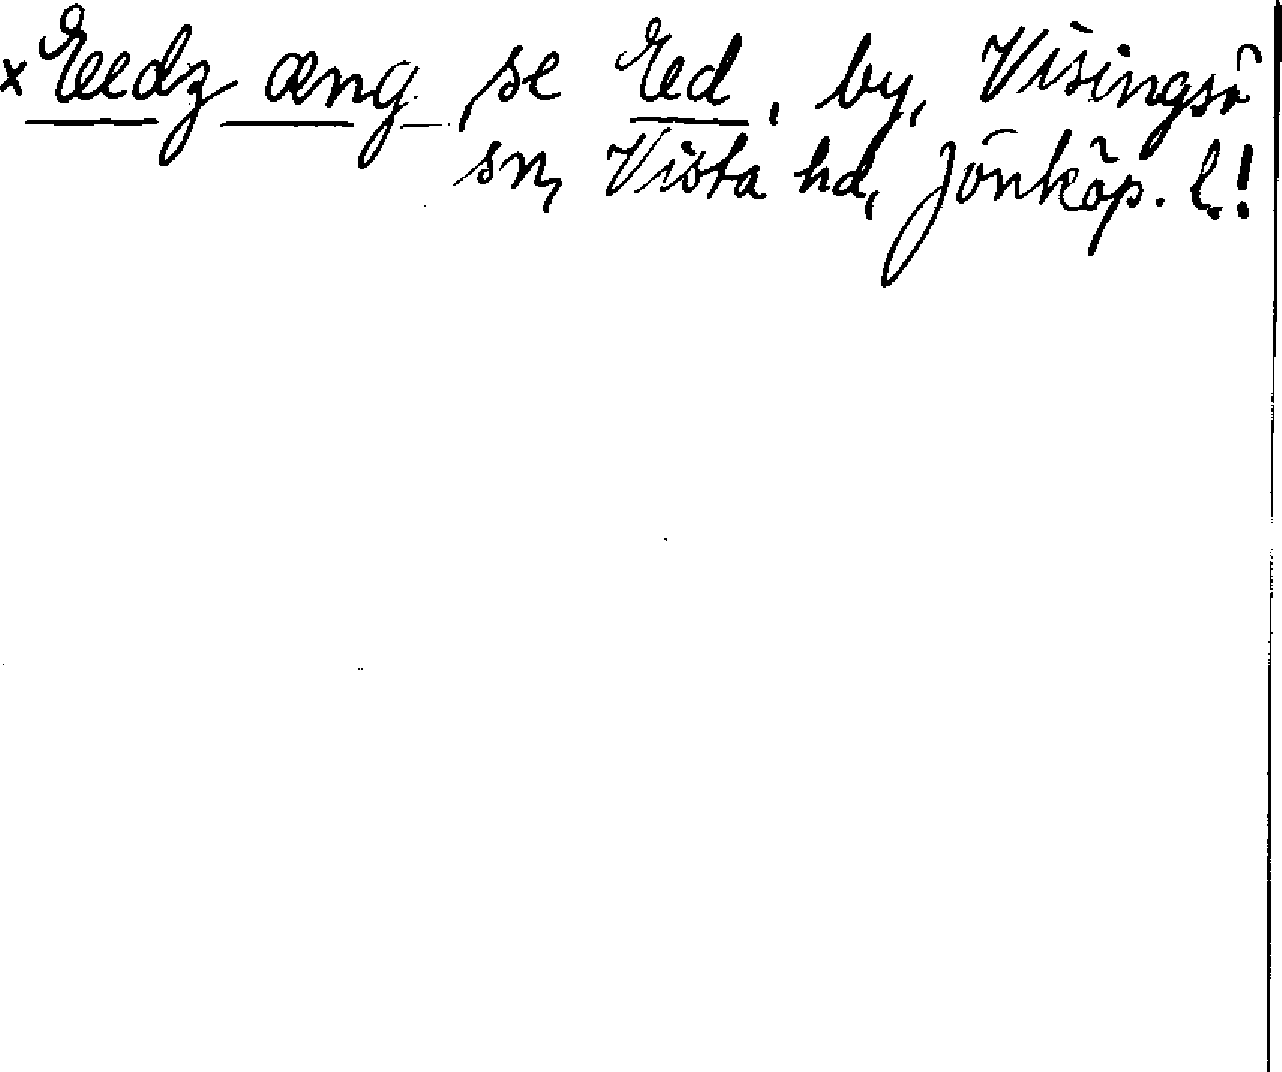 ×Eedz æng se Ed, by, Visingsö
sn, Vista hd, Jönköp. l.!